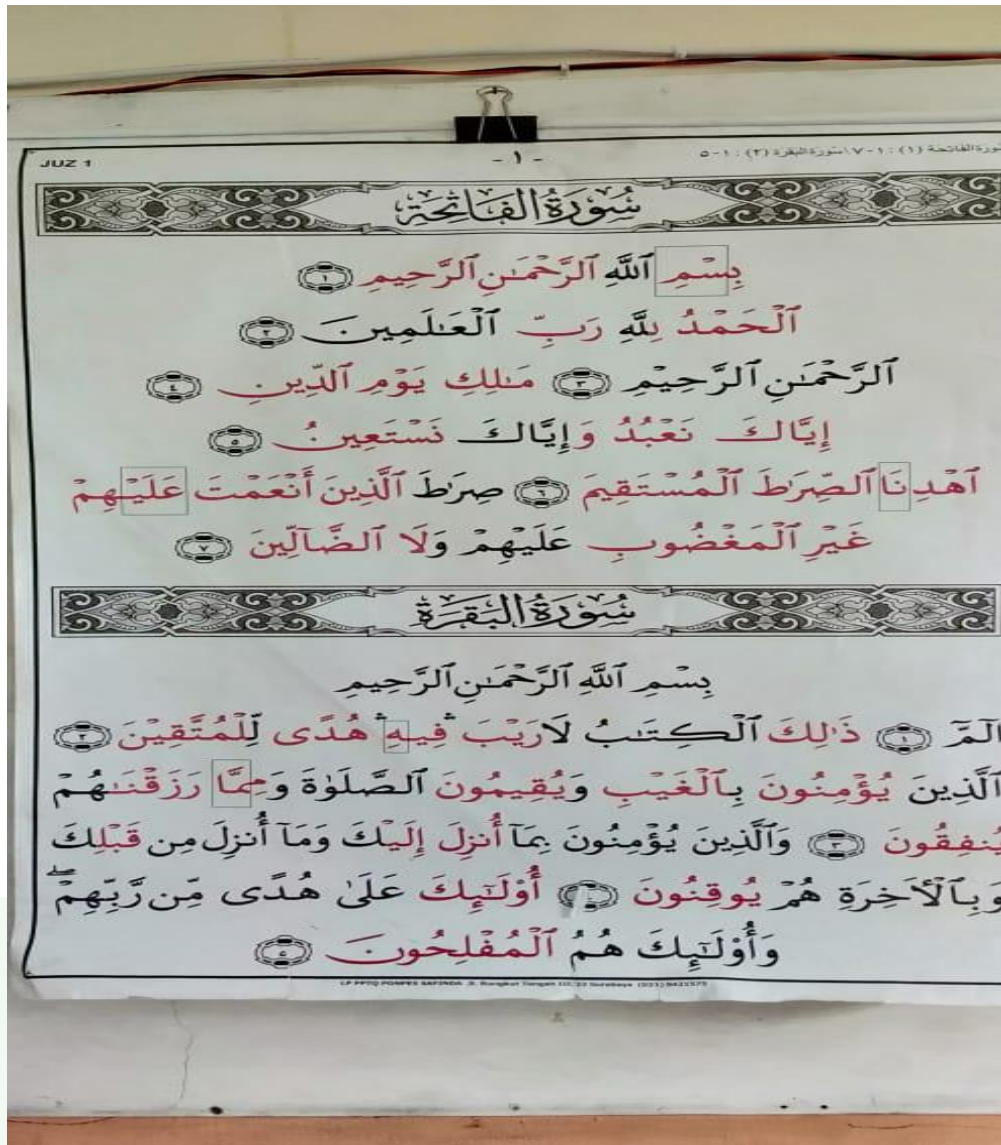 JUZ 1 - ١ - سورة الفاتحة (١) : ١-٧ \ سورة البقرة (٢) : ١-٥
سُورَةُ الْفَاتِحَةِ
بِسْمِ ٱللَّهِ ٱلرَّحْمَـٰنِ ٱلرَّحِيمِ ١
ٱلْحَمْدُ لِلَّهِ رَبِّ ٱلْعَـٰلَمِينَ ٢
ٱلرَّحْمَـٰنِ ٱلرَّحِيْمِ ٣ مَـٰلِكِ يَوْمِ ٱلدِّينِ ٤
إِيَّاكَ نَعْبُدُ وَإِيَّاكَ نَسْتَعِينُ ٥
ٱهْدِنَا ٱلصِّرَٰطَ ٱلْمُسْتَقِيمَ ٦ صِرَٰطَ ٱلَّذِينَ أَنْعَمْتَ عَلَيْهِمْ
غَيْرِ ٱلْمَغْضُوبِ عَلَيْهِمْ وَلَا ٱلضَّآلِّينَ ٧
سُورَةُ الْبَقَرَةِ
بِسْمِ ٱللَّهِ ٱلرَّحْمَـٰنِ ٱلرَّحِيمِ
الٓمٓ ١ ذَٰلِكَ ٱلْكِتَـٰبُ لَا رَيْبَ ۛ فِيهِ ۛ هُدًى لِّلْمُتَّقِيْنَ ٢
ٱلَّذِينَ يُؤْمِنُونَ بِٱلْغَيْبِ وَيُقِيمُونَ ٱلصَّلَوٰةَ وَمِمَّا رَزَقْنَـٰهُمْ
يُنفِقُونَ ٣ وَٱلَّذِينَ يُؤْمِنُونَ بِمَآ أُنزِلَ إِلَيْكَ وَمَآ أُنزِلَ مِن قَبْلِكَ
وَبِٱلْأَخِرَةِ هُمْ يُوقِنُونَ أُوْلَـٰٓئِكَ عَلَىٰ هُدًى مِّن رَّبِّهِمْ ۖ
وَأُوْلَـٰٓئِكَ هُمُ ٱلْمُفْلِحُونَ ٥
LP PPTQ PONPES SAFINDA Jl. Rungkut Tengah III/ 23 Surabaya (031)